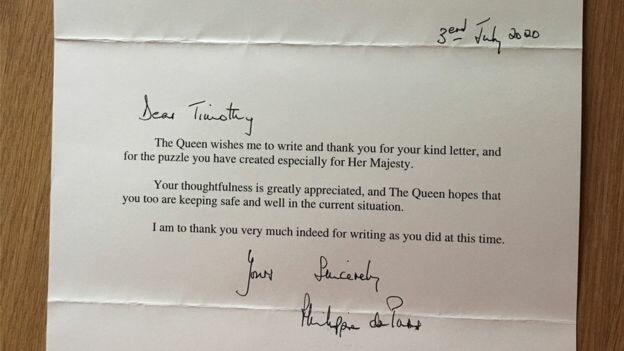 3erd July 2020
Dear Timothy
The Queen wishes me to write and thank you for your kind letter, and
for the puzzle you have created especially for Her Majesty.
Your thoughtfulness is greatly appreciated, and The Queen hopes that
you too are keeping safe and well in the current situation.
I am to thank you very much indeed for writing as you did at this time.
Yours Sincerely
Philippa de